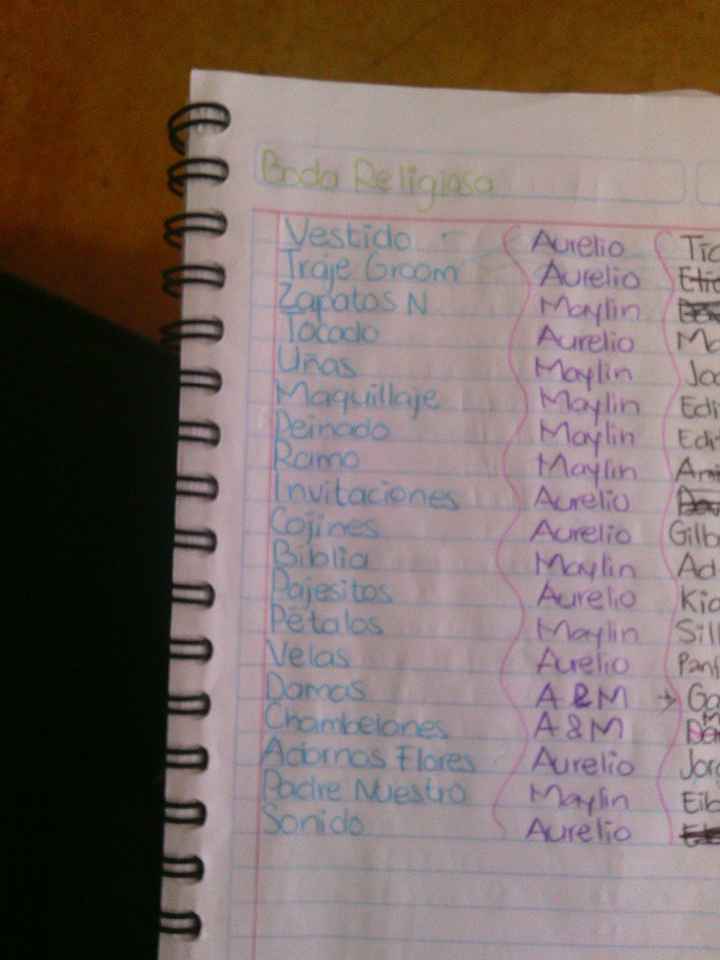 Boda Religiosa
Vestido Aurelio
Traje Groom Aurelio
Zapatos N Maylin
Tocado Aurelio
Uñas Maylin
Maquillaje Maylin Edi
Peinado Maylin Edi
Ramo Maylin
Invitaciones Aurelio
Cojines Aurelio Gilb
Biblia Maylin Ad
Pajesitos Aurelio
Pétalos Maylin Sill
Velas Aurelio
Damas A & M
Chambelanes A & M
Adornos Flores Aurelio
Padre Nuestro Maylin
Sonido Aurelio